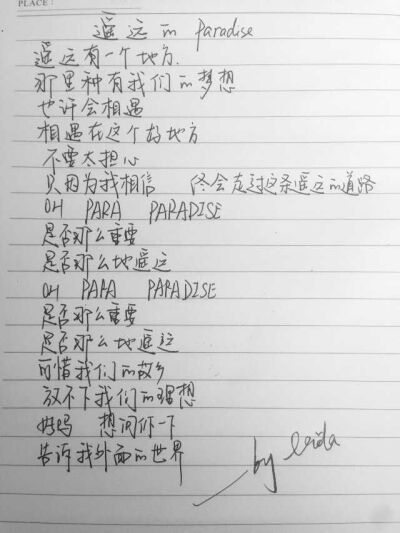 PLACE:
遥远的 Paradise
遥远有一个地方.
那里种有我们的梦想
也许会相遇
相遇在这个好地方
不要太担心
只因为我相信 终会走过这条遥远的道路
OH PARA PARADISE
是否那么重要
是否那么地遥远
OH PAPA PARADISE
是否那么重要
是否那么地遥远
可惜我们的故乡
放不下我们的理想
好吗 想问你一下
告诉我外面的世界
by leida